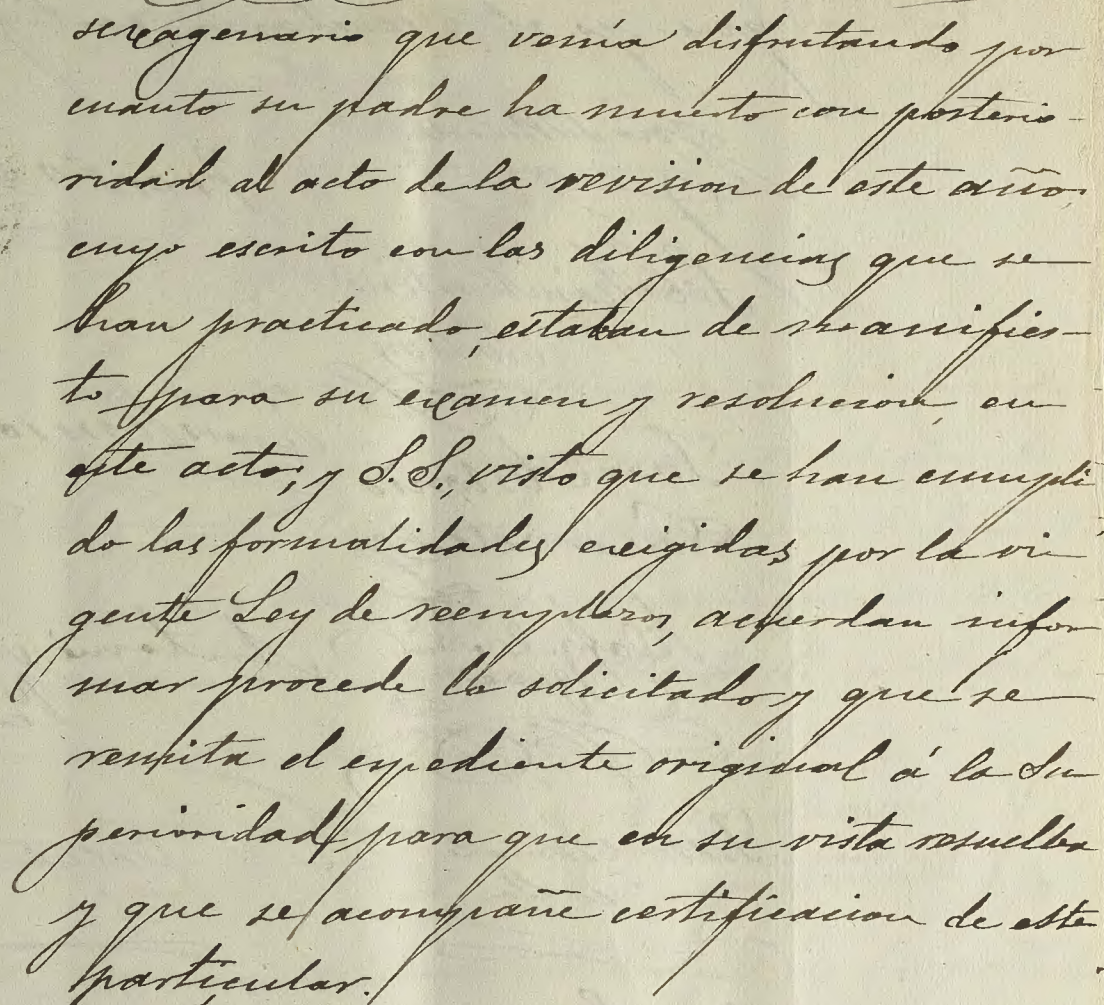 sexagenario que venía disfrutando por
cuanto su padre ha muerto con posterio-
ridad al acto de la revision de este año,
cuyo escrito con las diligencias que se
han practicado, estaban de manifies-
to para su examen y resolucion, en
este acto; y S.S., visto que se han cumpli
do las formalidades exigidas por la vi-
gente Ley de reemplazos, acuerdan infor
mar procede lo solicitado y que se
remita el expediente original á la Su
perioridad para que en su vista resuelba
y que se acompañe certificacion de este
particular.